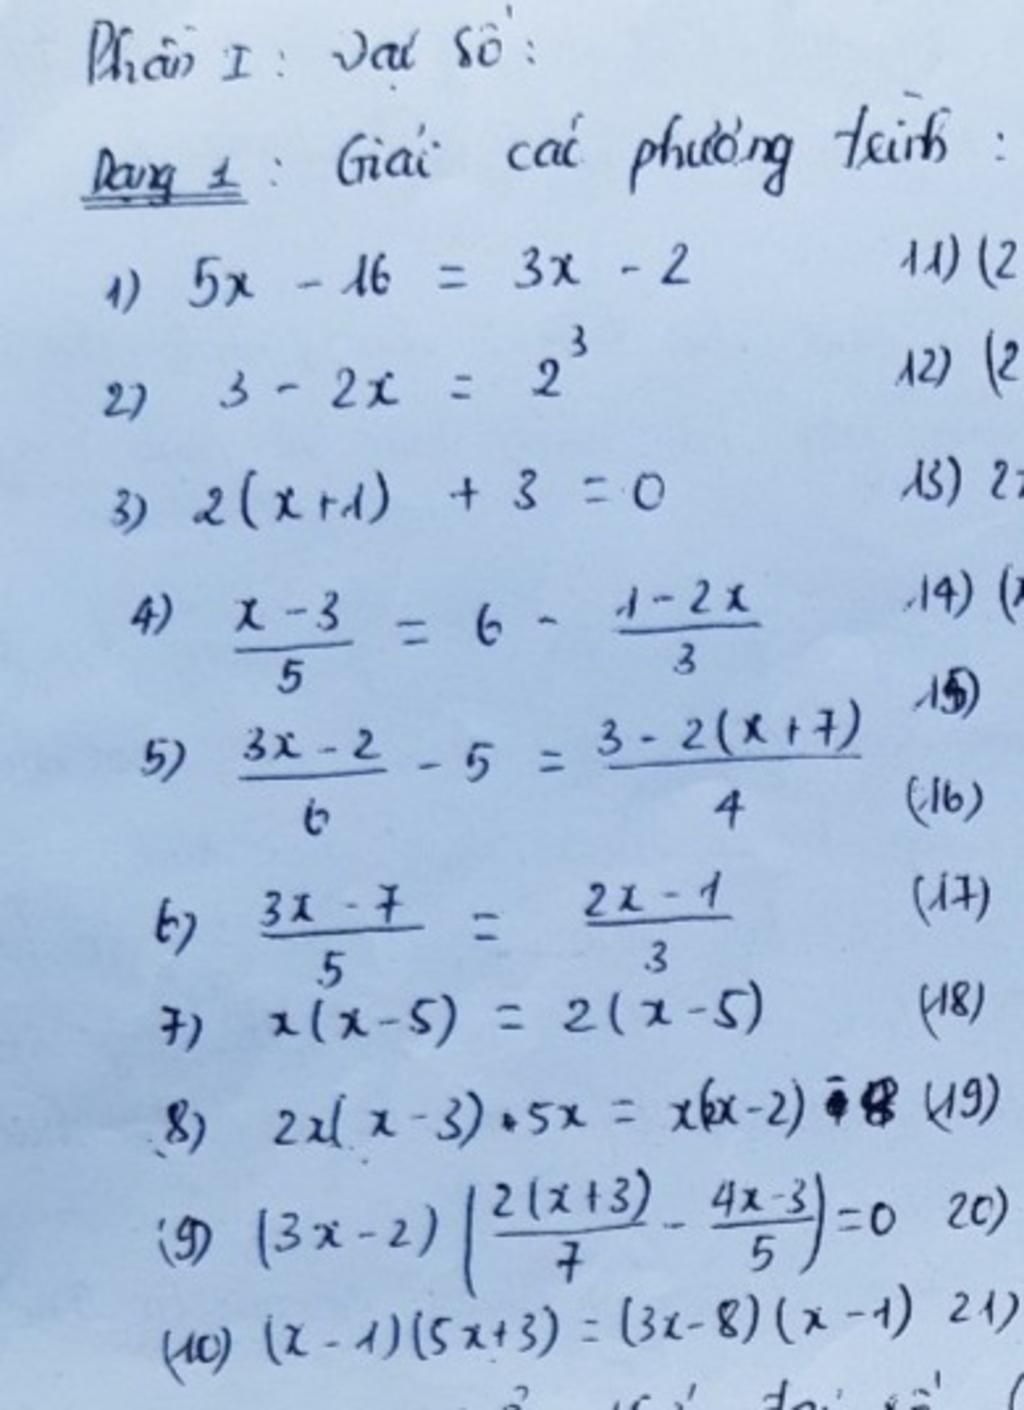 Phần I : Đại số :
Dạng 1 : Giải các phương trình :
1) 5x - 16 = 3x - 2
11) (2
2) 3 - 2x = 2^3
12) (2
3) 2(x+1) + 3 = 0
13) 2x
4) \frac{x-3}{5} = 6 - \frac{1-2x}{3}
14) (x
15)
5) \frac{3x-2}{6} - 5 = \frac{3-2(x+7)}{4}
(16)
6) \frac{3x-7}{5} = \frac{2x-1}{3}
(17)
7) x(x-5) = 2(x-5)
(18)
8) 2x(x-3) 5x = x(x-2)
(19)
(9) (3x-2)(\frac{2(x+3)}{7} - \frac{4x-3}{5}) = 0
20)
(10) (x-1)(5x+3) = (3x-8)(x-1)
21)